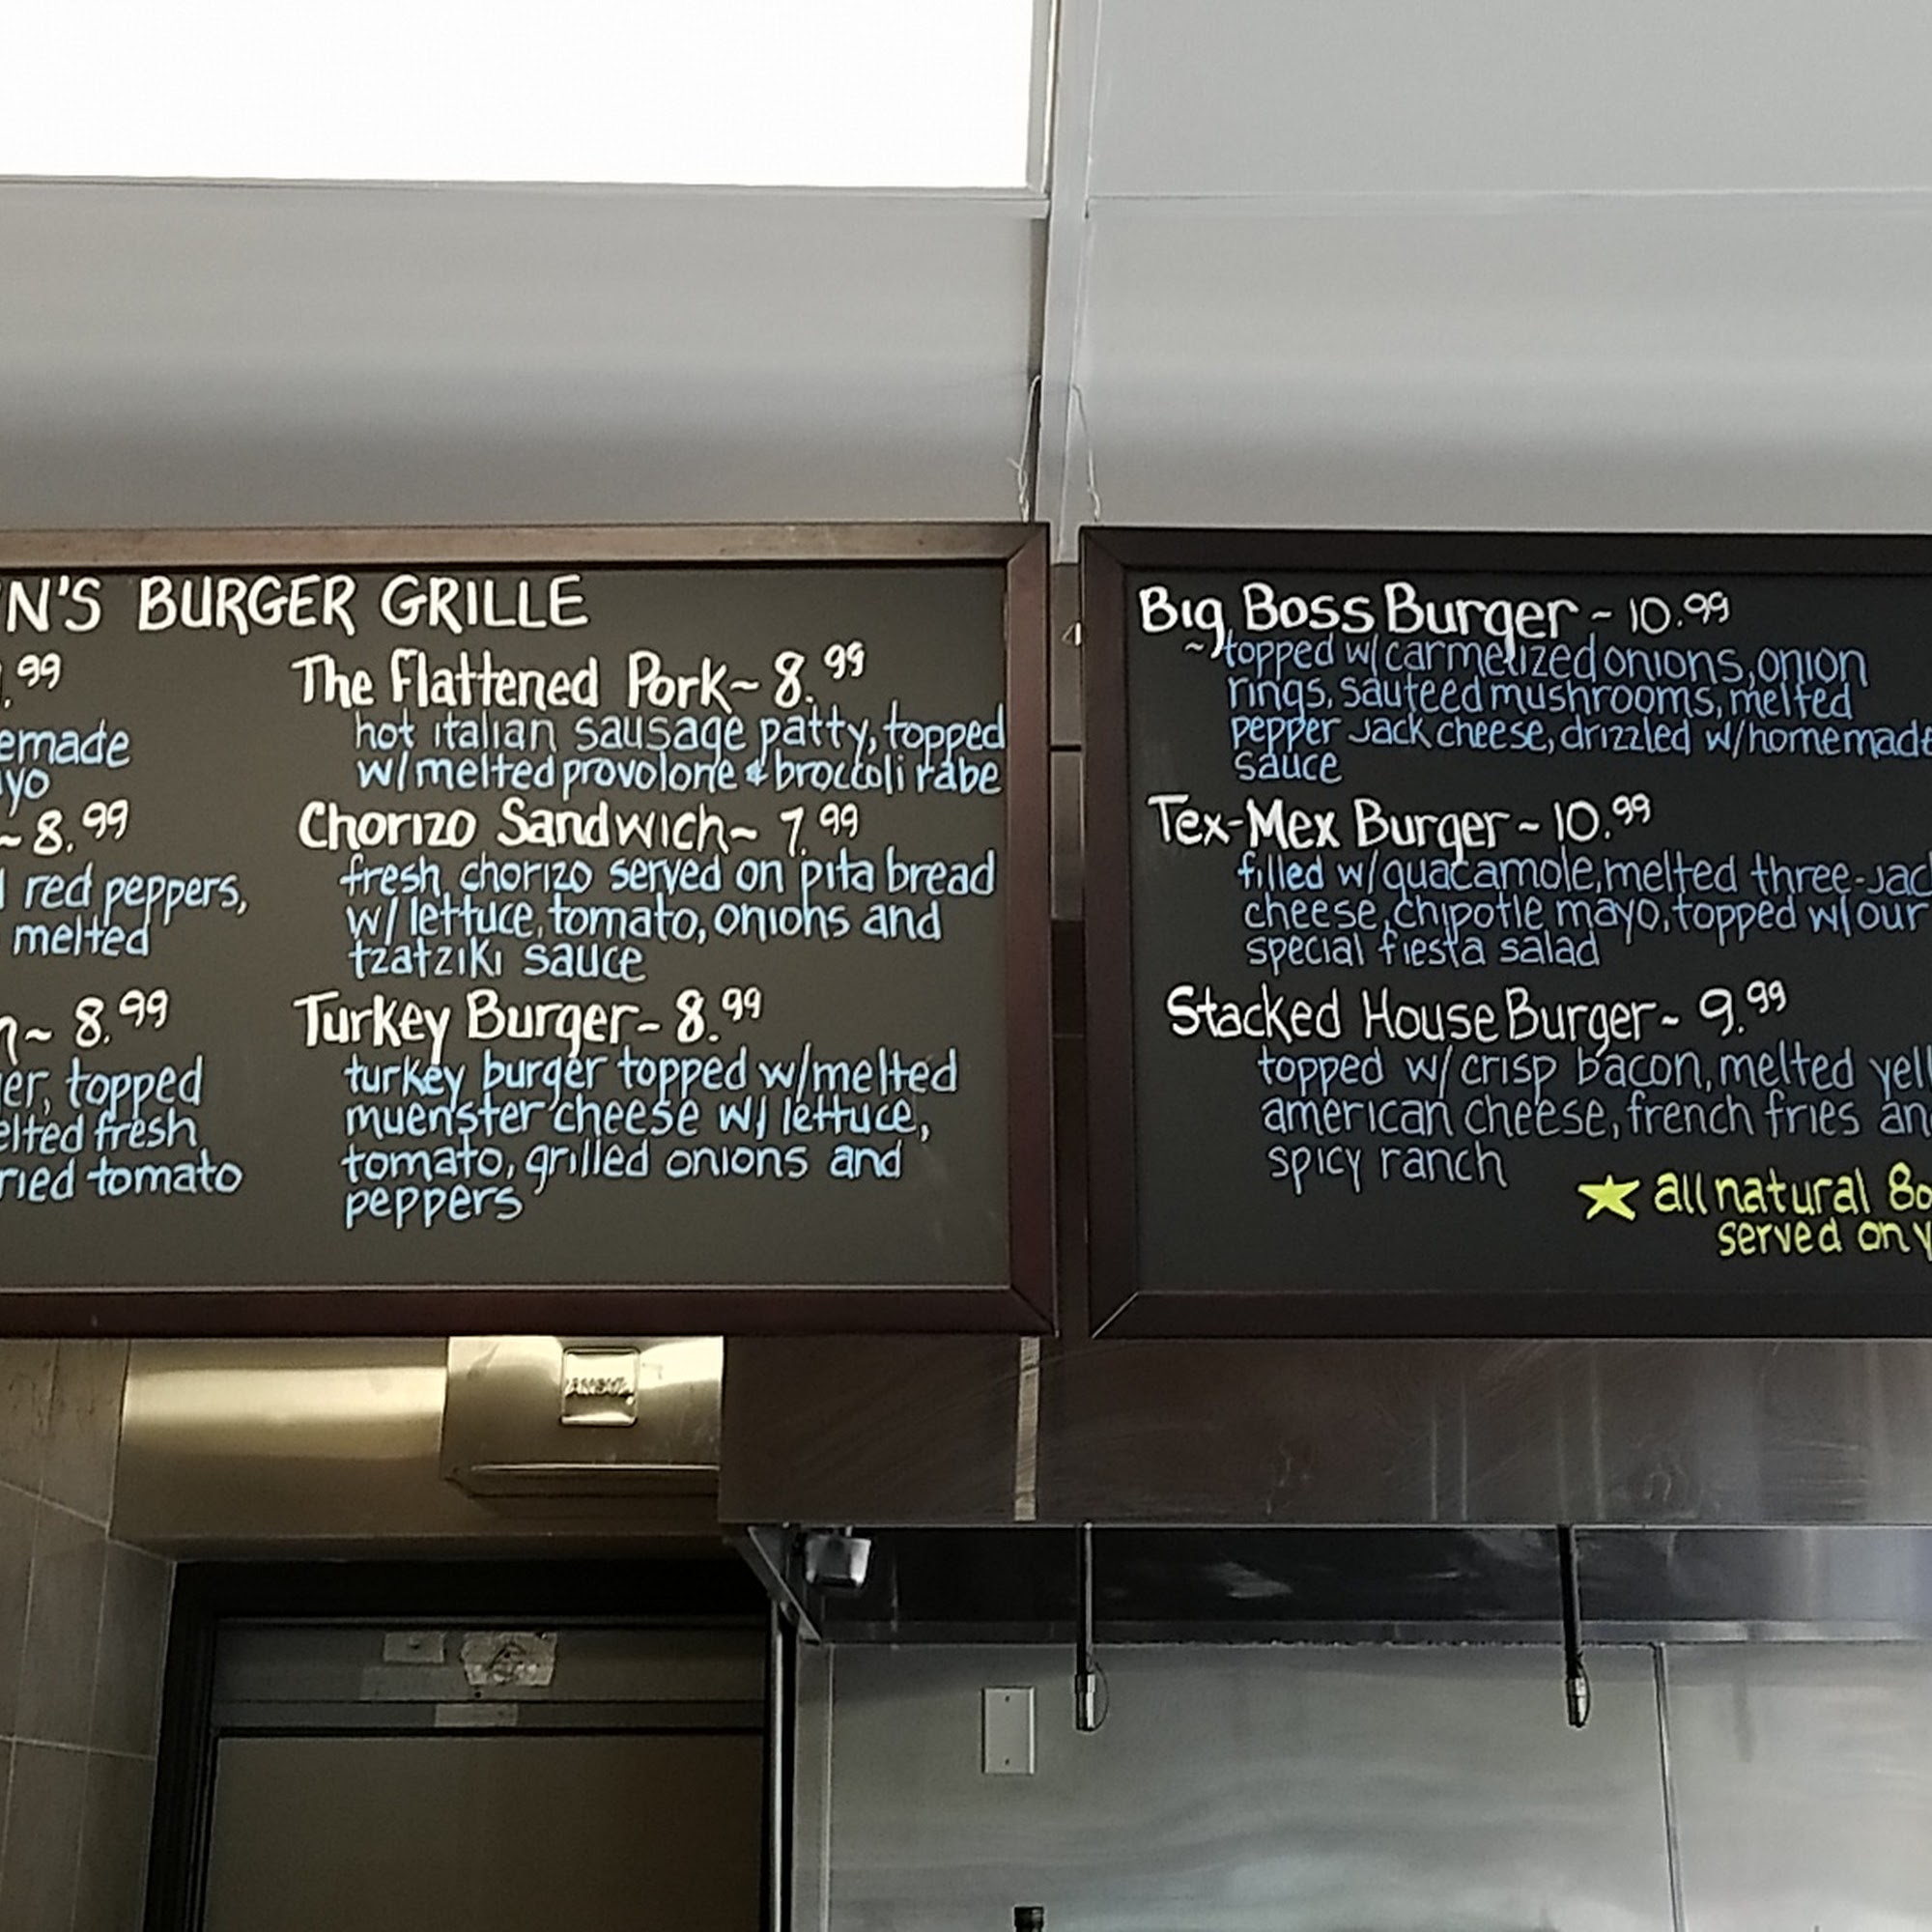 N'S BURGER GRILLE
.99
emade
yo
~8.99
red peppers,
melted
n~ 8.99
er, topped
elted fresh
ried tomato
The Flattened Pork~ 8.99
hot italian sausage patty, topped
w/ melted provolone & broccoli rabe
Chorizo Sandwich~ 7.99
fresh chorizo served on pita bread
w/ lettuce, tomato, onions and
tzatziki sauce
Turkey Burger~ 8.99
turkey burger topped w/melted
muenster cheese w/ lettuce,
tomato, grilled onions and
peppers
4
Big Boss Burger ~ 10.99
~topped w/ carmelized onions, onion
rings, sauteed mushrooms, melted
pepper jack cheese, drizzled w/homemade
sauce
Tex-Mex Burger ~ 10.99
filled w/guacamole, melted three-jac
cheese, chipotle mayo, topped w/ our
special fiesta salad
Stacked House Burger ~ 9.99
topped w/ crisp bacon, melted yell
american cheese, french fries an
spicy ranch
★ all natural 8o
served on y
ANSUL